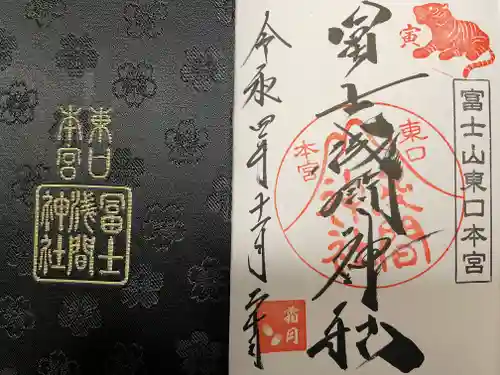 東口
本宮
冨士
浅間
神社
寅
富士山東口本宮
東口
本宮
浅間
神社
冨士浅間神社
令和四年十一月二十日
霜月